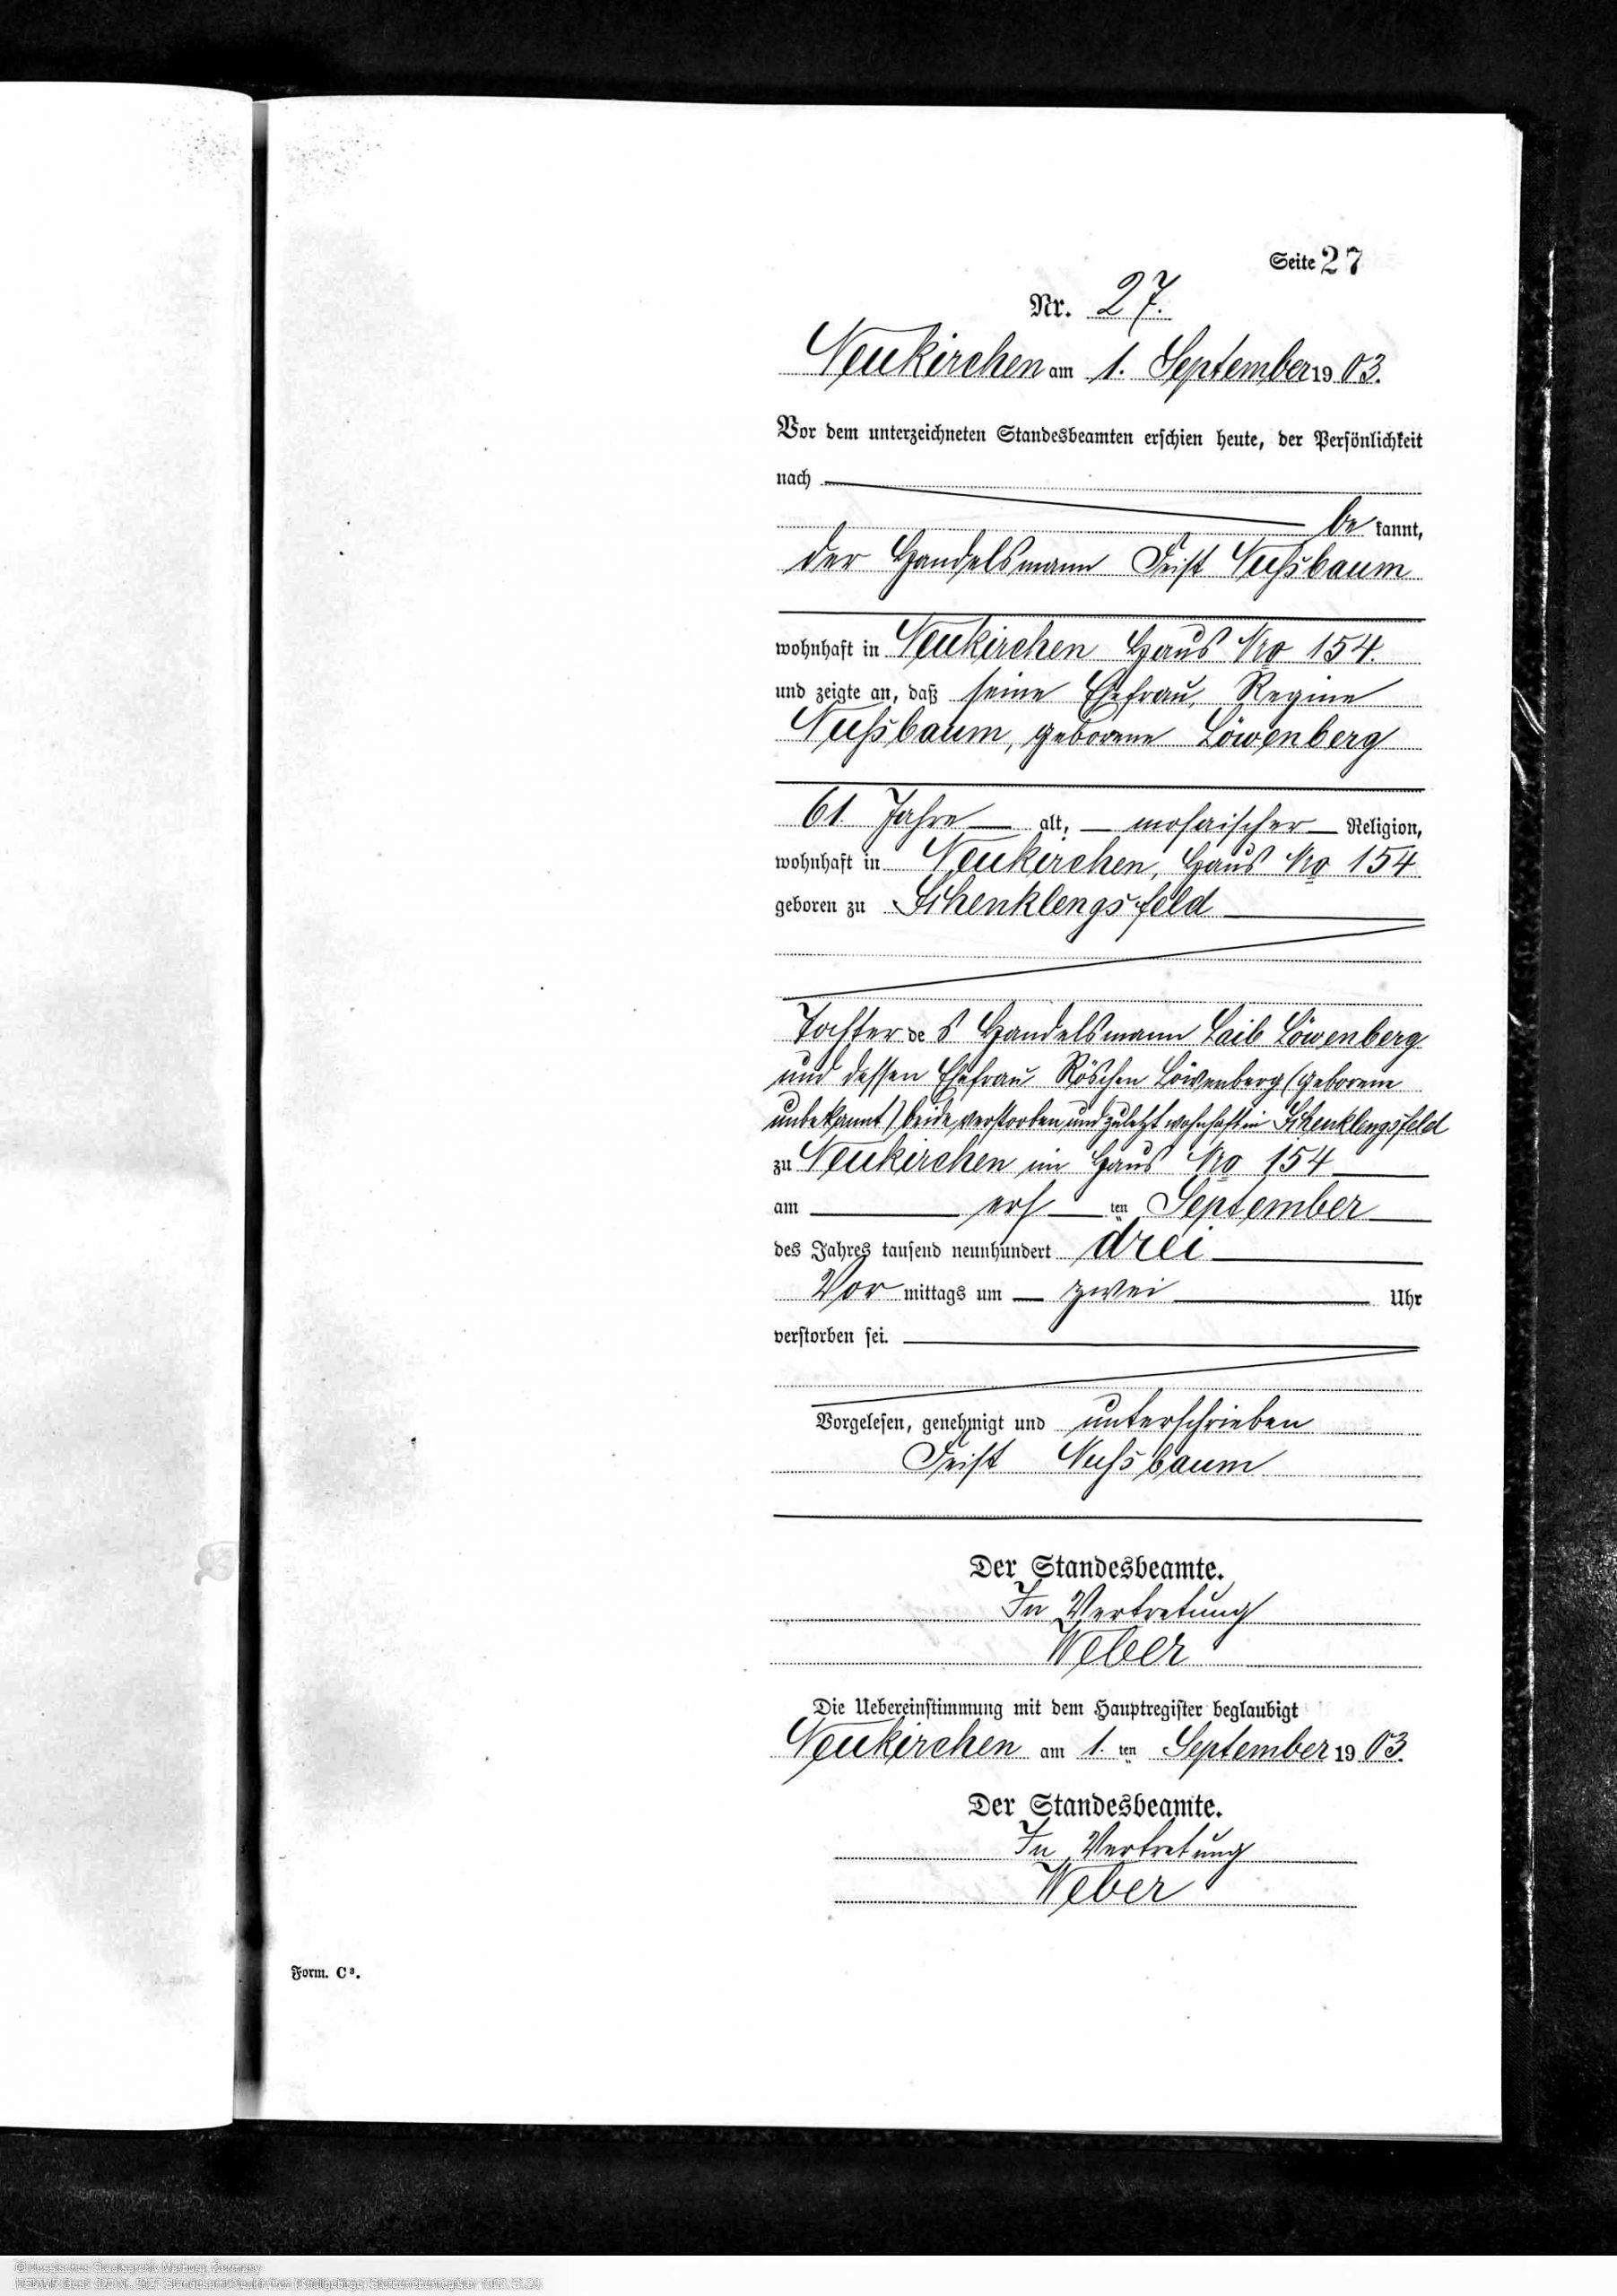 Seite 27
Nr. 27.
Neukirchen am 1. September 1903.
Vor dem unterzeichneten Standesbeamten erschien heute, der Persönlichkeit
nach
be kannt,
der Handelsmann Feist Nußbaum
wohnhaft in Neukirchen Haus No 154.
und zeigte an, daß seine Ehefrau, Regine
Nußbaum, geborene Löwenberg
61 Jahre alt, mosaischer Religion,
wohnhaft in Neukirchen, Haus No 154
geboren zu Schenklengsfeld
Tochter des Handelsmann Laib Löwenberg
und dessen Ehefrau Röschen Löwenberg (geborene
unbekannt) beide verstorben und zuletzt wohnhaft in Schenklengsfeld
zu Neukirchen im Haus No 154
am ers ten September
des Jahres tausend neunhundert drei
Vor mittags um zwei Uhr
verstorben sei.
Vorgelesen, genehmigt und unterschrieben
Feist Nußbaum
Der Standesbeamte.
In Vertretung
Weber
Die Uebereinstimmung mit dem Hauptregister beglaubigt
Neukirchen am 1. ten September 1903.
Der Standesbeamte.
In Vertretung
Weber
Form. C³.
Hessisches Staatsarchiv Marburg, Germany